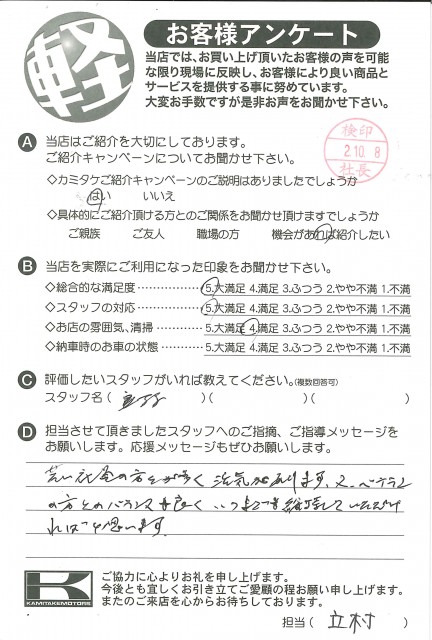 軽
お客様アンケート
当店では、お買い上げ頂いたお客様の声を可能
な限り現場に反映し、お客様により良い商品と
サービスを提供する事に努めています。
大変お手数ですが是非お声をお聞かせ下さい。
検印
2.10.8
社長
A 当店はご紹介を大切にしております。
ご紹介キャンペーンについてお聞かせ下さい。
◇カミタケご紹介キャンペーンのご説明はありましたでしょうか
はい いいえ
◇具体的にご紹介頂ける方とのご関係をお聞かせ頂けますでしょうか
ご親族 ご友人 職場の方 機会があれば紹介したい
B 当店を実際にご利用になった印象をお聞かせ下さい。
◇総合的な満足度 5.大満足 4.満足 3.ふつう 2.やや不満 1.不満
◇スタッフの対応 5.大満足 4.満足 3.ふつう 2.やや不満 1.不満
◇お店の雰囲気、清掃 5.大満足 4.満足 3.ふつう 2.やや不満 1.不満
◇納車時のお車の状態 5.大満足 4.満足 3.ふつう 2.やや不満 1.不満
C 評価したいスタッフがいれば教えてください。(複数回答可)
スタッフ名( )( )( )
D 担当させて頂きましたスタッフへのご指摘、ご指導メッセージを
お願いします。応援メッセージもぜひお願いします。
若い社員の方々が多く 活気があります。又、ベテラン
の方とのバランスも良く いつまでも維持していただけ
ればと思います。
K
KAMITAKEMOTORS
ご協力に心よりお礼を申し上げます。
今後とも宜しくお引き立てご愛顧の程お願い申し上げます。
またのご来店を心からお待ちしております。
担当( 立村 )